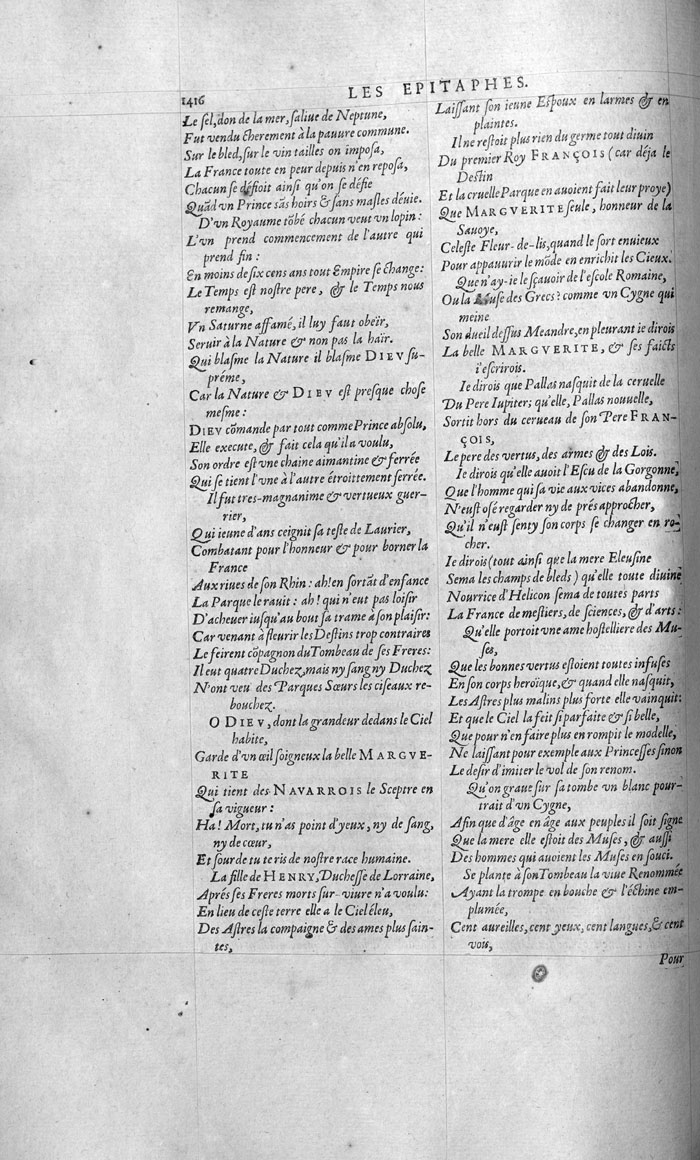 1416
LES EPITAPHES.
Le ſel, don de la mer, ſaliue de Neptune,
Fut vendu cherement à la pauure commune.
Sur le bled, ſur le vin tailles on impoſa,
La France toute en peur depuis n'en repoſa,
Chacun ſe défioit ainſi qu'on ſe défie
Quãd vn Prince sãs hoirs & ſans maſles déuie.
D'vn Royaume tõbé chacun veut vn lopin:
L'vn prend commencement de l'autre qui
prend fin:
En moins de ſix cens ans tout Empire ſe change:
Le Temps eſt noſtre pere, & le Temps nous
remange,
Vn Saturne affamé, il luy faut obeïr,
Seruir à la Nature & non pas la haïr.
Qui blaſme la Nature il blaſme DIEV ſu-
préme,
Car la Nature & DIEV eſt preſque choſe
meſme:
DIEV cõmande par tout comme Prince abſolu,
Elle execute, & fait cela qu'il a voulu,
Son ordre eſt vne chaine aimantine & ferrée
Qui ſe tient l'vne à l'autre étroittement ſerrée.
Il fut tres-magnanime & vertueux guer-
rier,
Qui ieune d'ans ceignit ſa teſte de Laurier,
Combatant pour l'honneur & pour borner la
France
Aux riues de ſon Rhin: ah! en ſortãt d'enfance
La Parque le rauit: ah! qui n'eut pas loiſir
D'acheuer iuſqu'au bout ſa trame à ſon plaiſir:
Car venant à fleurir les Deſtins trop contraires
Le feirent cõpagnon du Tombeau de ſes Freres:
Il eut quatre Duchez, mais ny ſang ny Duchez
N'ont veu des Parques Sœurs les ciſeaux re-
bouchez.
O DIEV, dont la grandeur dedans le Ciel
habite,
Garde d'vn œil ſoigneux la belle MARGVE-
RITE
Qui tient des NAVARROIS le Sceptre en
ſa vigueur:
Ha! Mort, tu n'as point d'yeux, ny de ſang,
ny de cœur,
Et ſourde tu te ris de noſtre race humaine.
La fille de HENRY, Ducheſſe de Lorraine,
Aprés ſes Freres morts ſur-viure n'a voulu:
En lieu de ceſte terre elle a le Ciel éleu,
Des Aſtres la compaigne & des ames plus ſain-
tes,
Laiſſant ſon ieune Eſpoux en larmes & en
plaintes.
Il ne reſtoit plus rien du germe tout diuin
Du premier Roy FRANÇOIS (car déja le
Deſtin
Et la cruelle Parque en auoient fait leur proye)
Que MARGVERITE ſeule, honneur de la
Sauoye,
Celeſte Fleur-de-lis, quand le ſort enuieux
Pour appauurir le mõde en enrichit les Cieux.
Que n'ay-ie le ſçauoir de l'eſcole Romaine,
Ou la Muſe des Grecs? comme vn Cygne qui
meine
Son dueil deſſus Meandre, en pleurant ie dirois
La belle MARGVERITE, & ſes faicts
i'eſcrirois.
Ie dirois que Pallas naſquit de la ceruelle
Du Pere Iupiter; qu'elle, Pallas nouuelle,
Sortit hors du cerueau de ſon Pere FRAN-
ÇOIS,
Le pere des vertus, des armes & des Lois.
Ie dirois qu'elle auoit l'Eſcu de la Gorgonne,
Que l'homme qui ſa vie aux vices abandonne,
N'euſt oſé regarder ny de prés approcher,
Qu'il n'euſt ſenty ſon corps ſe changer en ro-
cher.
Ie dirois (tout ainſi que la mere Eleuſine
Sema les champs de bleds) qu'elle toute diuine
Nourrice d'Helicon ſema de toutes parts
La France de meſtiers, de ſciences, & d'arts:
Qu'elle portoit vne ame hoſtelliere des Mu-
ſes,
Que les bonnes vertus eſtoient toutes infuſes
En ſon corps heroïque, & quand elle naſquit,
Les Aſtres plus malins plus forte elle vainquit:
Et que le Ciel la feit ſi parfaite & ſi belle,
Que pour n'en faire plus en rompit le modelle,
Ne laiſſant pour exemple aux Princeſſes ſinon
Le deſir d'imiter le vol de ſon renom.
Qu'on graue ſur ſa tombe vn blanc pour-
trait d'vn Cygne,
Afin que d'âge en âge aux peuples il ſoit ſigne
Que la mere elle eſtoit des Muſes, & auſſi
Des hommes qui auoient les Muſes en ſouci.
Se plante à ſon Tombeau la viue Renommée
Ayant la trompe en bouche & l'échine em-
plumée,
Cent aureilles, cent yeux, cent langues, & cent
vois,
Pour